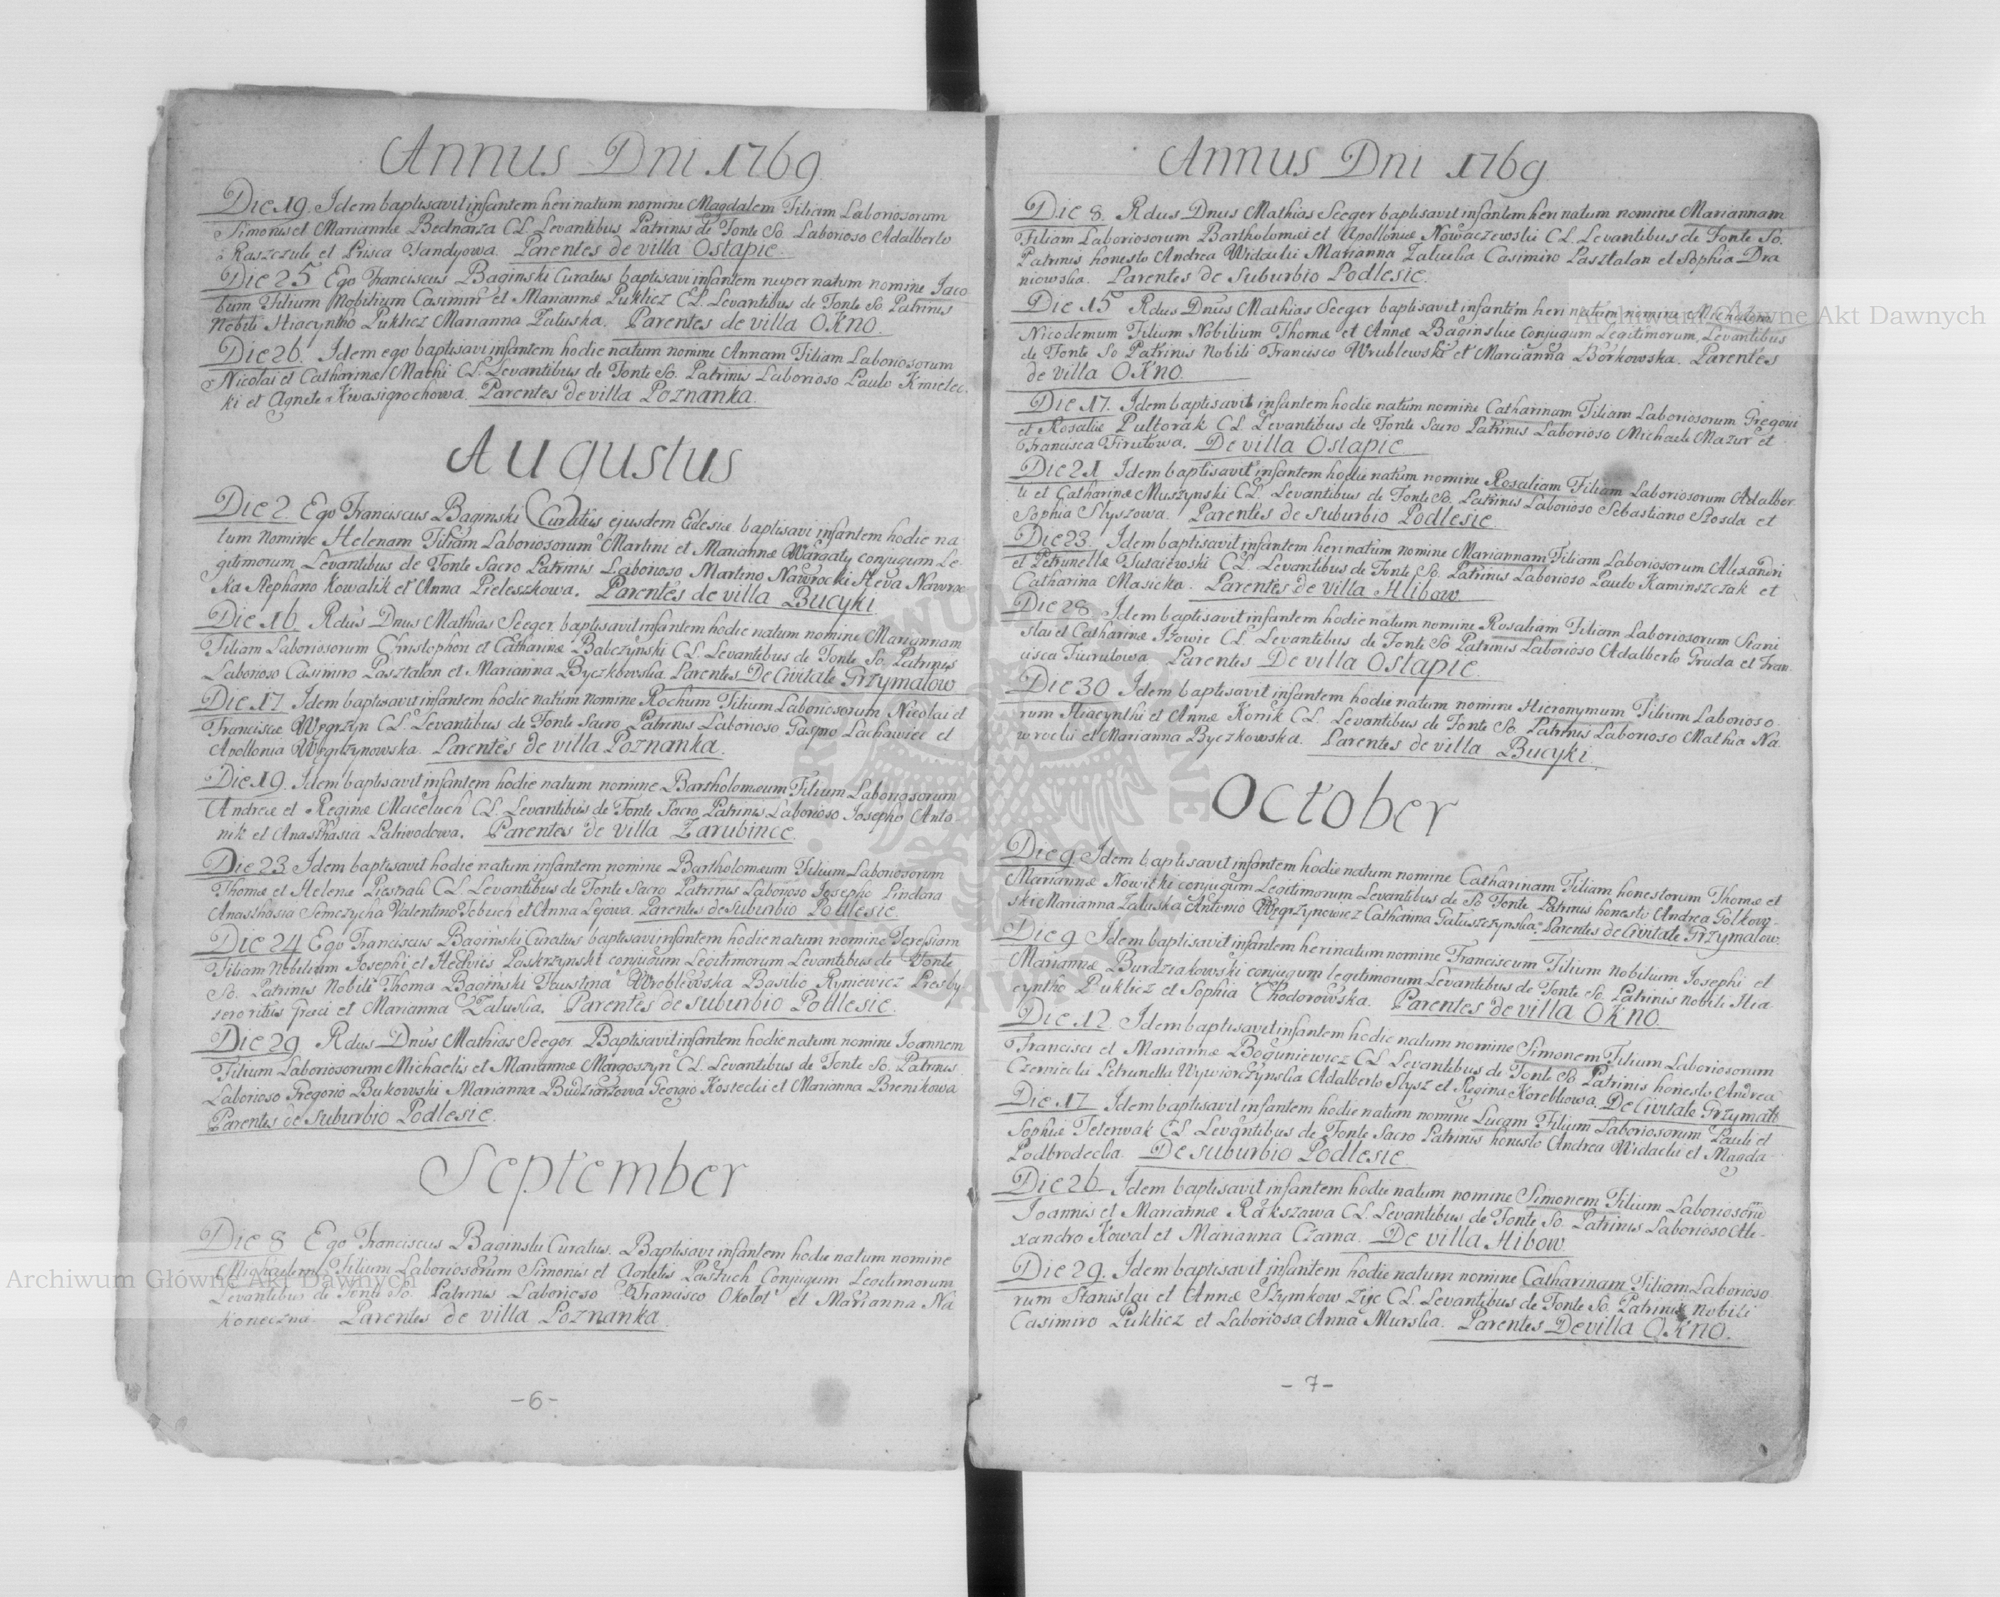 Annus Dni 1769
Die 19. Idem baptisavit infantem heri natum nomine Magdalem Filiam Laboriosorum
Simonis et Mariannæ Bednarza CL. Levantibus Patrinis de Fonte So. Laborioso Adalberto
Raszczule et Prisca Tandyowa. Parentes de villa Ostapie.
Die 25 Ego Franciscus Baginski Curatus baptisavi infantem nuper natum nomine Jaco
bum Filium Nobilium Casimiri et Mariannæ Puklicz CL. Levantibus de Fonte So Patrinis
Nobili Hiacyntho Puklicz Marianna Zaluska. Parentes de villa OKno.
Die 26. Idem ego baptisavi infantem hodie natum nomine Annam Filiam Laboriosorum
Nicolai et Catharinæ Machi CL. Levantibus de Fonte So. Patrinis Laborioso Paulo Kmielec
ki et Agnete Kwasigrochowa. Parentes de villa Poznanka.
Augustus
Die 2. Ego Franciscus Baginski Curatus ejusdem Eclesiæ baptisavi infantem hodie na
tum nomine Helenam Filiam Laboriosorum Martini et Mariannæ Wargaty conjugum Le
gitimorum, Levantibus de Fonte Sacro Patrinis Laborioso Martino Nawrocki Heva Nawroc
Ka Stephano Kowalik et Anna Pieleszkowa. Parentes de villa Bucyki
Die 16 Rdus Dnus Mathias Seeger baptisavit infantem hodie natum nomine Mariannam
Filiam Laboriosorum Christophori et Catharinæ Babczynski CL. Levantibus de Fonte So. Patrinis
Laborioso Casimiro Pasztalan et Marianna Byczkowska. Parentes De Civitate Grzymalow
Die 17. Idem baptisavit infantem hodie natum nomine Rochum Filium Laboriosorum Nicolai et
Franciscæ Węgrzyn CL. Levantibus de Fonte Sacro Patrinis Laborioso Gaspro Lachawiec et
Apollonia Węgrzynowska. Parentes de villa Poznanka.
Die 19. Idem baptisavit infantem hodie natum nomine Bartholomæum Filium Laboriosorum
Andreæ et Reginæ Maceluch CL. Levantibus de Fonte Sacro Patrinis Laborioso Josepho Anto
nik et Anasthasia Patwodowa. Parentes de villa Zarubince.
Die 23 Idem baptisavit hodie natum infantem nomine Bartholomæum Filium Laboriosorum
Thomæ et Helenæ Piestrali CL. Levantibus de Fonte Sacro Patrinis Laborioso Josepho Pindara
Anasthasia Semczycha Valentino Jebuch et Anna Lejowa. Parentes de suburbio Podlesie.
Die 24 Ego Franciscus Baginski Curatus baptisavi infantem hodie natum nomine Teresiam
Filiam Nobilium Josephi et Hedvies Paskrzynski conjugum Legitimorum Levantibus de Fonte
So. Patrinis Nobili Thoma Baginski Faustina Wroblewska Basilio Ryniewicz Presby
sero ritus græci et Marianna Zaluska. Parentes de suburbio Podlesie.
Die 29 Rdus Dnus Mathias Seeger. Baptisavit infantem hodie natum nomine Joannem
Filium Laboriosorum Michaelis et Mariannæ Margoszyn CL. Levantibus de Fonte So. Patrinis
Laborioso Gregorio Bukowski Marianna Budzianzowa Georgio Kostecki et Marianna Brenikowa
Parentes de Suburbio Podlesie.
September
Die 8 Ego Franciscus Baginski Curatus. Baptisavi infantem hodie natum nomine
Michaelem Filium Laboriosorum Simonis et Agnetis Pastuch Conjugum Legitimorum
Levantibus de Fonte So. Patrinis Laborioso Francisco Okolot et Marianna Na
Koneczna. Parentes de villa Poznanka.
-6-
Annus Dni 1769
Die 8. Rdus Dnus Mathias Seeger baptisavit infantem heri natum nomine Mariannam
Filiam Laboriosorum Bartholomæi et Apolloniæ Nowaczewski CL. Levantibus de Fonte So.
Patrinis honesto Andrea Widacki Marianna Zaluska Casimiro Pasztalan et Sophia Dra
niowska. Parentes de Suburbio Podlesie.
Die 15 Rdus Dnus Mathias Seeger baptisavit infantem heri natum nomine Michaelem
Nicodemum Filium Nobilium Thomæ et Annæ Baginskie Conjugum Legitimorum, Levantibus
de Fonte So Patrinis Nobili Francisco Wrublewski et Marcianna Borkowska. Parentes
de villa OKno.
Die 17. Idem baptisavit infantem hodie natum nomine Catharinam Filiam Laboriosorum Gregorii
et Rosaliæ Pultorak CL. Levantibus de Fonte Sacro Patrinis Laborioso Michaele Mazur et
Francisca Firutowa. De villa Ostapie.
Die 21 Idem baptisavit infantem hodie natum nomine Rosaliam Filiam Laboriosorum Adalber
ti et Catharinæ Muszynski CL. Levantibus de Fonte So. Patrinis Laborioso Sebastiano Szosda et
Sophia Slyszowa. Parentes de suburbio Podlesie
Die 23 Idem baptisavit infantem heri natum nomine Mariannam Filiam Laboriosorum Alexandri
et Petrunellæ Tutaiewski CL. Levantibus de Fonte So. Patrinis Laborioso Paulo Kaminszczak et
Catharina Masicka. Parentes de villa Hlibow.
Die 28 Idem baptisavit infantem hodie natum nomine Rosaliam Filiam Laboriosorum Stani
slai et Catharinæ Izowie CL. Levantibus de Fonte So Patrinis Laborioso Adalberto Gruda et Fran
cisca Fiurutowa Parentes De villa Ostapie.
Die 30 Idem baptisavit infantem hodie natum nomine Hieronymum Filium Laborioso
rum Hiacynthi et Annæ Konik CL. Levantibus de Fonte So. Patrinis Laborioso Mathia Na
wrocki et Marianna Byczkowska. Parentes de villa Bucyki.
October
Die 9 Idem baptisavit infantem hodie natum nomine Catharinam Filiam honestorum Thomæ et
Mariannæ Nowicki conjugum Legitimorum Levantibus de So Fonte Patrinis honesto Andrea Golkow
ski Marianna Zaluska Antonio Węgrzynowicz Catharina Galuszczynska. Parentes de Civitate Grzymalow.
Die 9 Idem baptisavit infantem heri natum nomine Franciscum Filium Nobilium Josephi et
Mariannæ Burdziakowski conjugum legitimorum Levantibus de Fonte So. Patrinis nobili Hia
cyntho Puklicz et Sophia Chodorowska. Parentes de villa OKno.
Die 12 Idem baptisavit infantem hodie natum nomine Simonem Filium Laboriosorum
Francisci et Mariannæ Boguniewicz CL. Levantibus de Fonte So Patrinis honesto Andrea
Czernicki Petrunella Wywiorczynska Adalberto Slysz et Regina Korebliowa. De Civitate Grzymalo
Die 17 Idem baptisavit infantem hodie natum nomine Lucam Filium Laboriosorum Pauli et
Sophiæ Teterwak CL. Levantibus de Fonte Sacro Patrinis honesto Andrea Widacki et Magda
Podbrodecka. De suburbio Podlesie.
Die 26 Idem baptisavit infantem hodie natum nomine Simonem Filium Laboriosorum
Joannis et Mariannæ Rakszawa CL. Levantibus de Fonte So. Patrinis Laborioso Ale
xandro Kowal et Marianna Czarna. De villa Hlibow.
Die 29. Idem baptisavit infantem hodie natum nomine Catharinam Filiam Laborioso
rum Stanislai et Annæ Szymkow zye CL. Levantibus de Fonte So. Patrinis Nobili
Casimiro Puklicz et Laboriosa Anna Murska. Parentes De villa OKno.
-7-
Archiwum Główne Akt Dawnych
Archiwum Główne Akt Dawnych